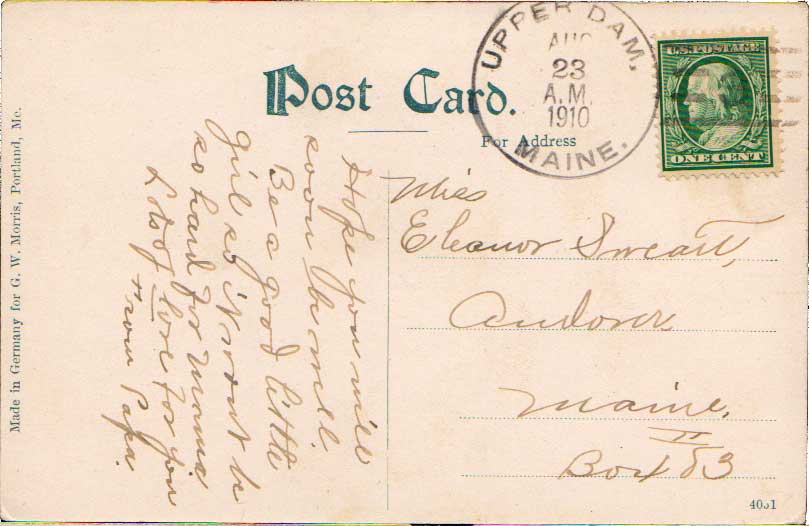 Post Card.
For Address
UPPER DAM,
AUG
23
A.M.
1910
MAINE.
U.S. POSTAGE
ONE CENT
Hope you will
soon be well.
Be a good little
girl so it wont be
so hard for mama
Lots of love for you
From Papa.
Miss
Eleanor Sweatt,
Andover
Maine.
Box 83
Made in Germany for G. W. Morris, Portland, Me.
4031